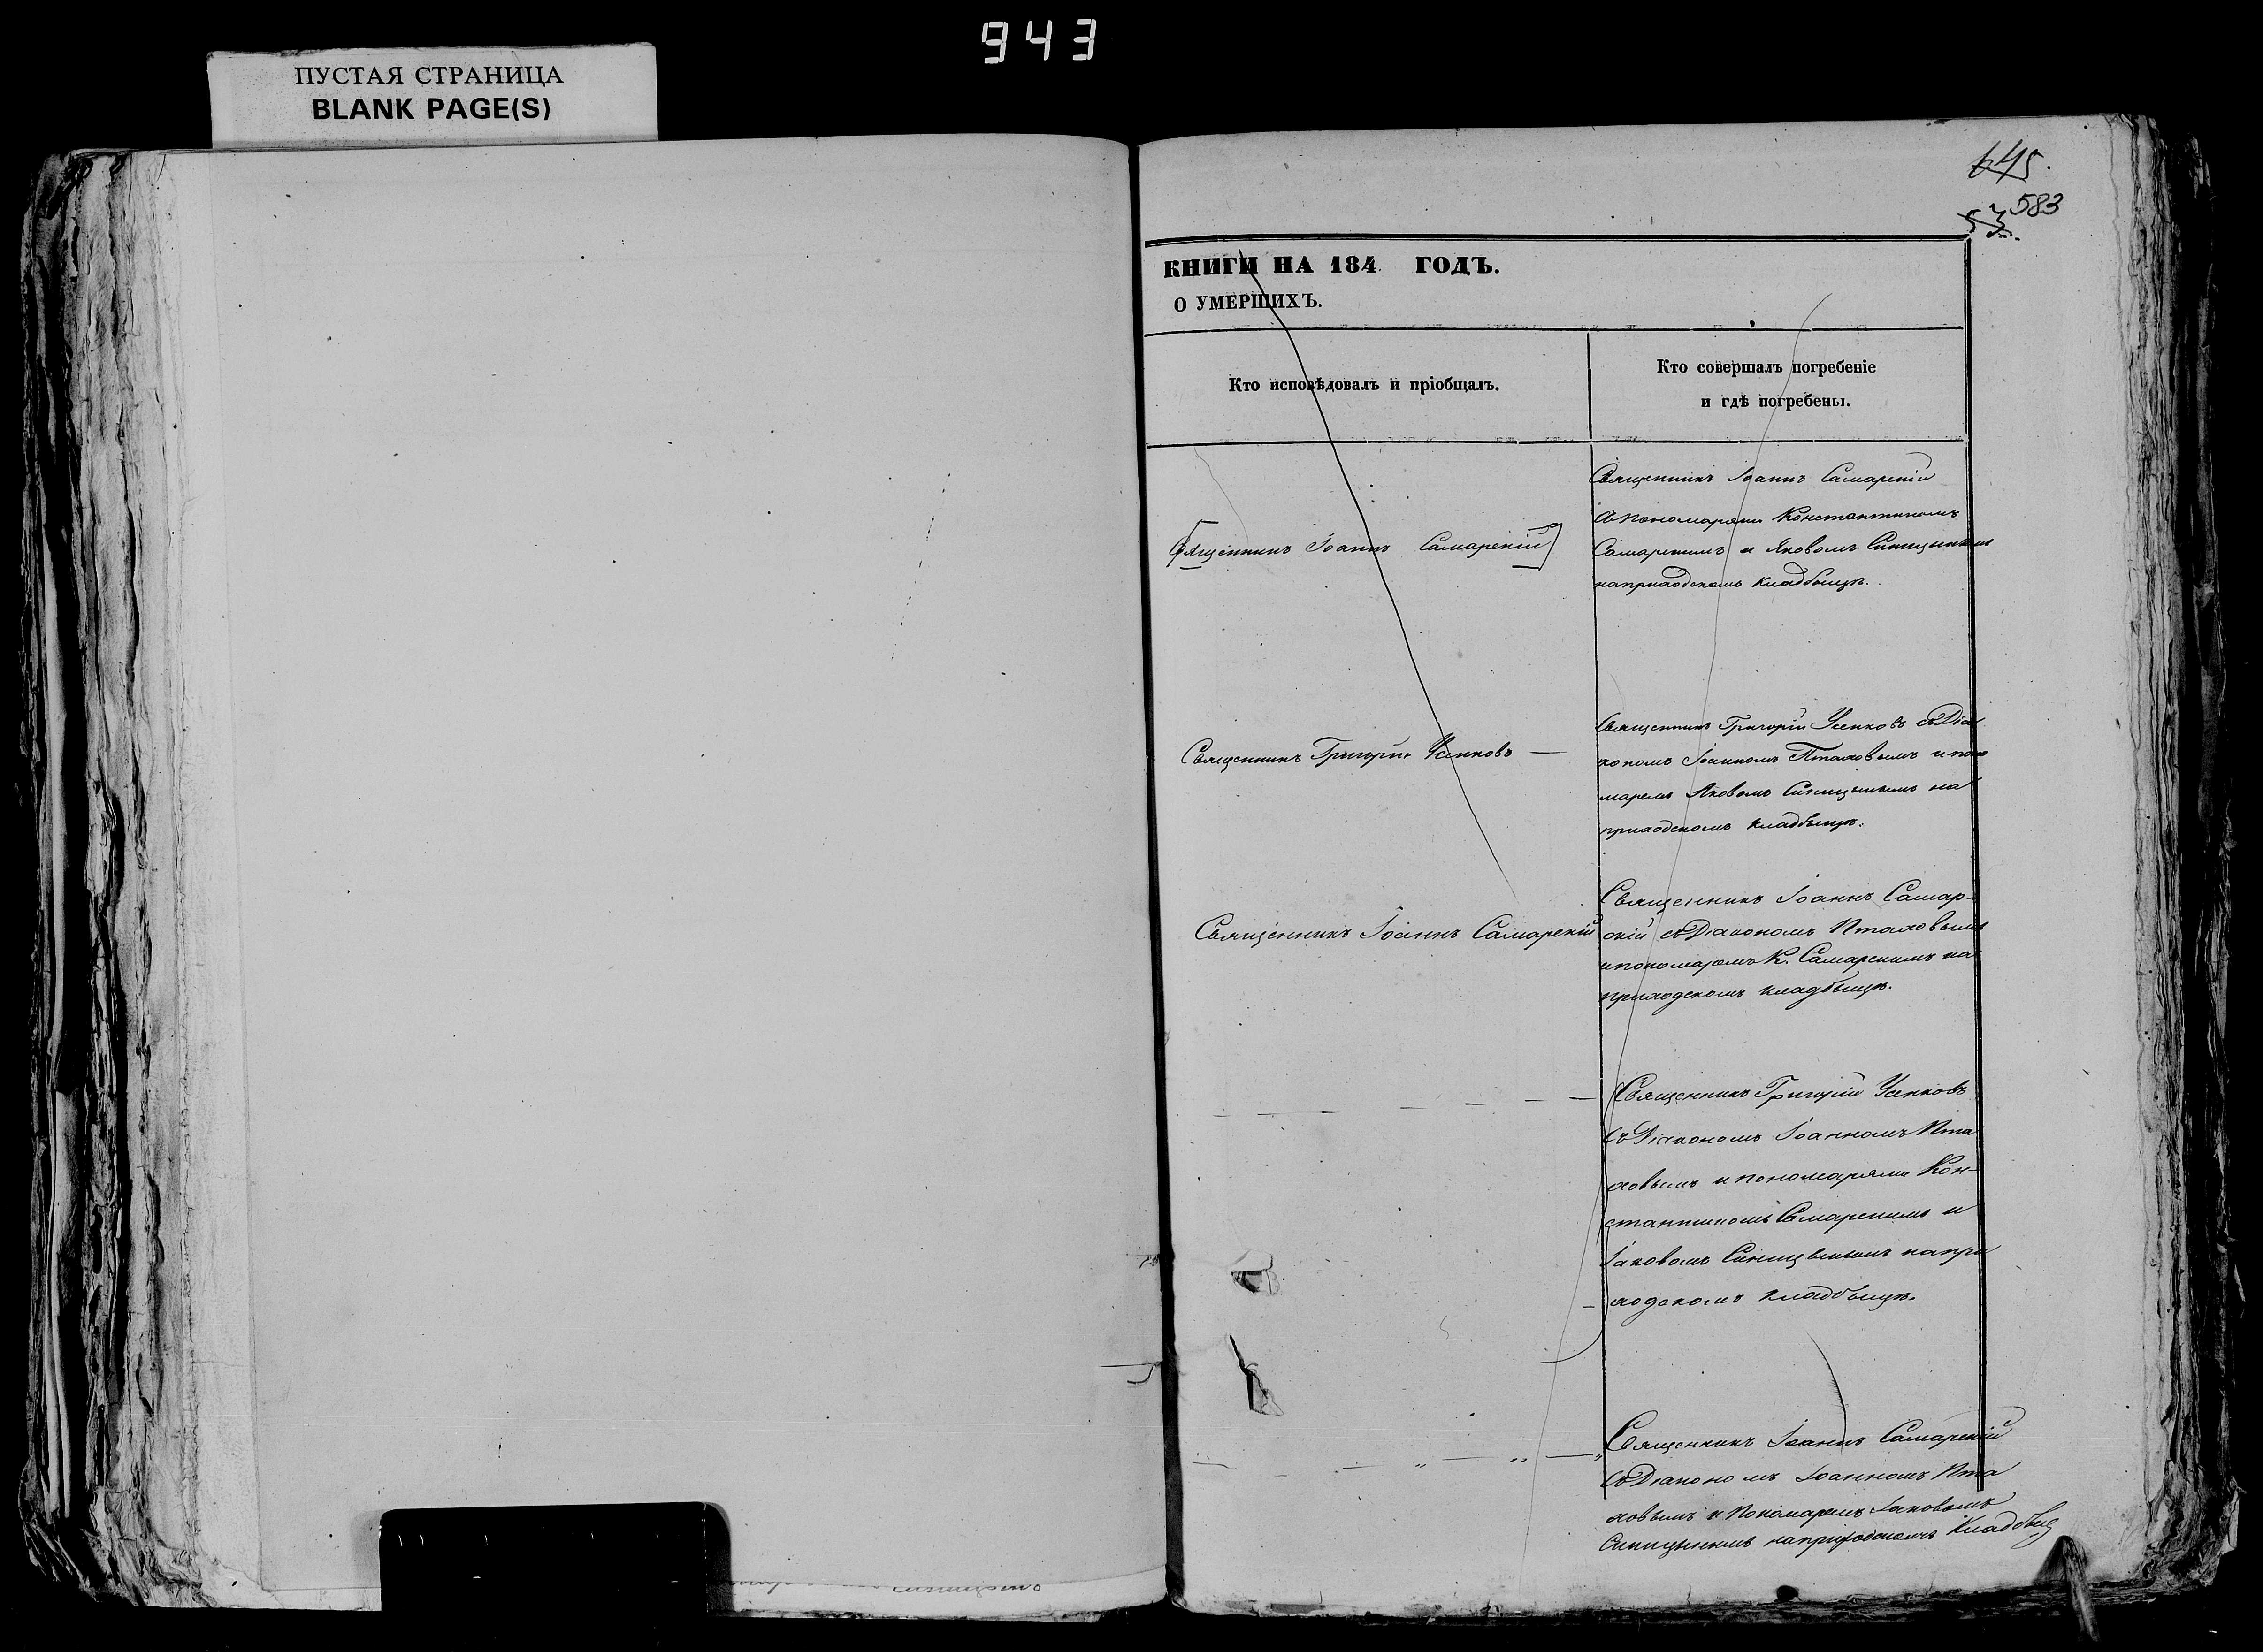 943
ПУСТАЯ СТРАНИЦА
BLANK PAGE(S)
645.
583
53.
КНИГИ НА 184 ГОДЪ.
О УМЕРШИХЪ.
Кто исповѣдовалъ и пріобщалъ.
Кто совершалъ погребеніе
и гдѣ погребены.
Священникъ Іоаннъ Самарскій
Священникъ Іоаннъ Самарскій
съ пономарями Константиномъ
Самарскимъ и Яковомъ Синицынымъ
на приходскомъ кладбищѣ.
Священникъ Григорій Усенковъ —
Священникъ Григорій Усенковъ съ Діа
кономъ Іоанномъ Птаховымъ и поно
маремъ Яковомъ Синицынымъ на
приходскомъ кладбищѣ.
Священникъ Іоаннъ Самарскій
Священникъ Іоаннъ Самар-
скій съ Діакономъ Птаховымъ
и пономаремъ К. Самарскимъ на
приходскомъ кладбищѣ.
Священникъ Григорій Усенковъ
съ Діакономъ Іоанномъ Пта
ховымъ и пономарями Кон-
стантиномъ Самарскимъ и
Іаковомъ Синицынымъ на при
ходскомъ кладбищѣ.
Священникъ Іоаннъ Самарскій
съ Діакономъ Іоанномъ Пта
ховымъ и Пономаремъ Іаковомъ
Синицынымъ на приходскомъ Кладбищ